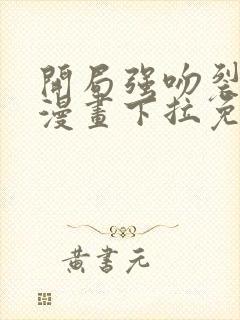 開局强吻裂
漫畫下拉免
黄書元